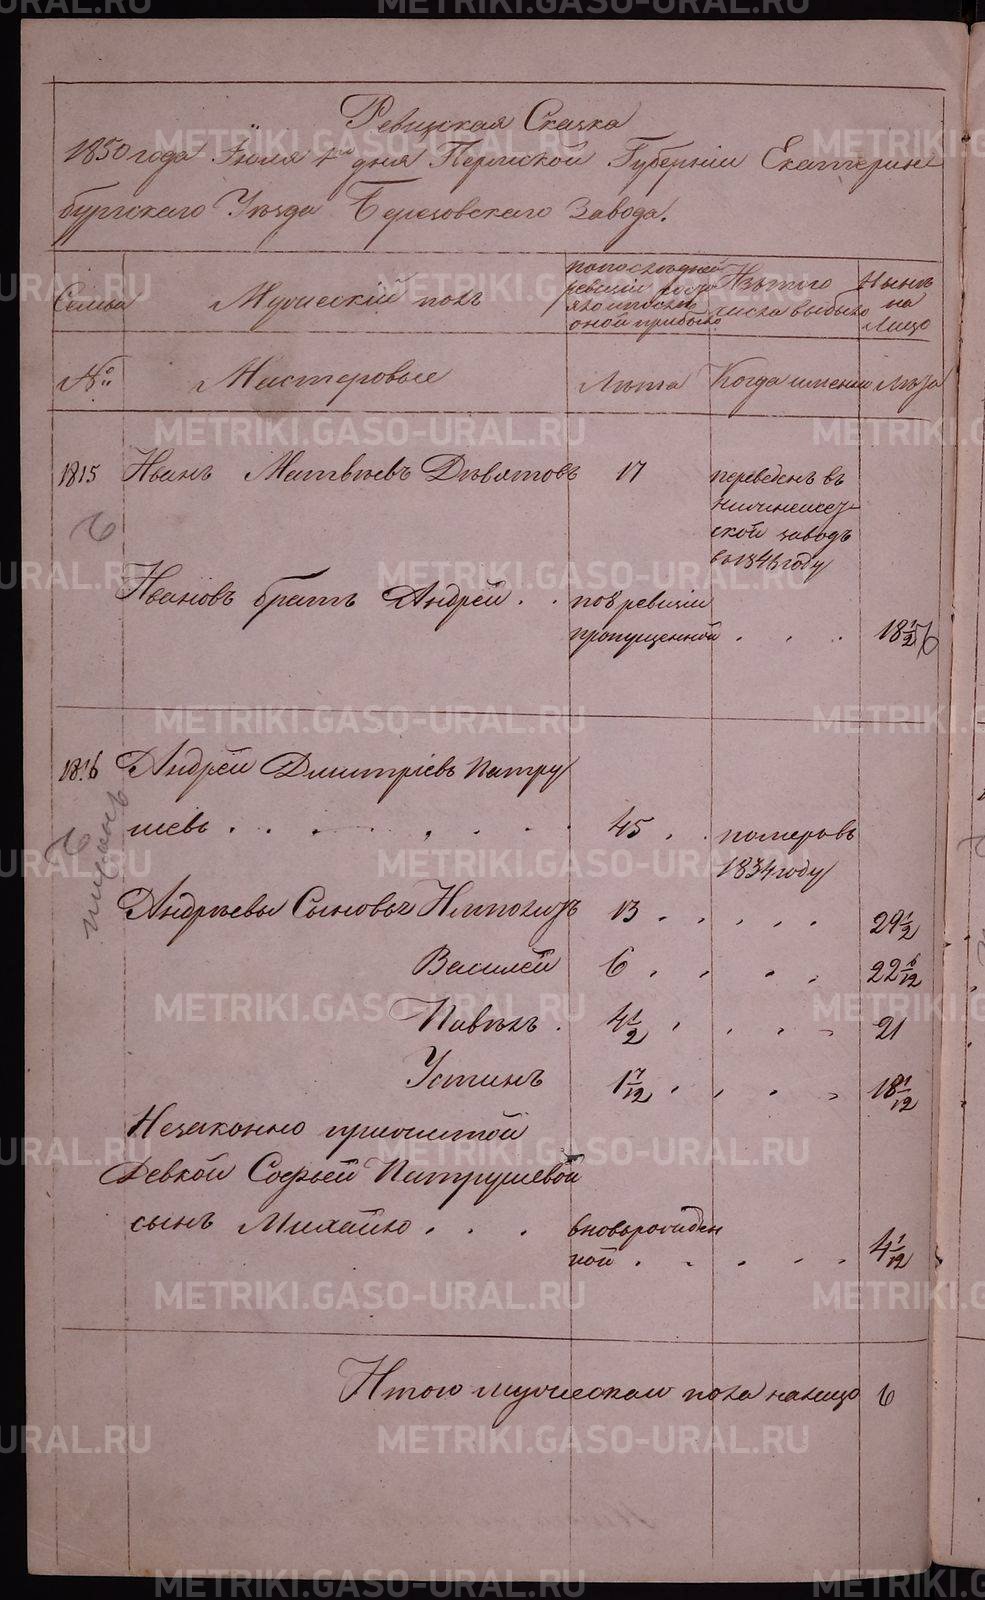 Ревизская Сказка
1850 года Июля 1го дня Пермской Губерніи Екатерин
бургскаго Уѣзда Березовскаго Завода.
Семья
Мужескій полъ
попослѣдней
ревизіи состо
яло и послѣ
оной прибыло
Изъ того
числа выбыло
Нынѣ
на
лицо
№
Мастеровые
Лѣта
Когда именно
Лѣта
1815 Иванъ Матвѣевъ Девятовъ 17
переведенъ въ
Нижнеисет
ской заводъ
Ивановъ братъ Андрей . . по 8 ревизіи
пропущенной . . . 18 1/2
1816 Андрей Дмитріевъ Патру
шевъ . . . . . . . 45 . . померъ въ
1834 году
Андрѣевы Сыновья Ипполитъ 13 . . . . . 29 1/2
Василей 6 . . . . 22 6/12
Павелъ . 4 1/2 . . . . 21
Устинъ 1 7/12 . . . . 18 1/12
Незаконно прижитой
Девкой Софьей Патрушевой
сынъ Михайло . . . вновьрожден
ной . . . . . 4 1/12
Итого мужескаго пола налицо 6
METRIKI.GASO-URAL.RU